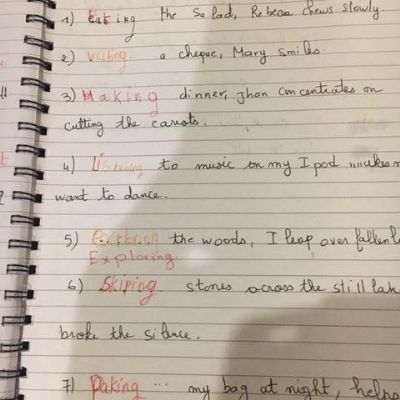 1) Eating the Salad, Rebeca chews slowly.
2) Writing a cheque, Mary smiles.
3) Making dinner, Jhon concentrates on
cutting the carots.
4) Listening to music on my I pod makes m
want to dance.
5) the woods, I leap over fallen l
Exploring
6) Skiping stones across the still lak
broke the silence.
7) Paking ... my bag at night, helps